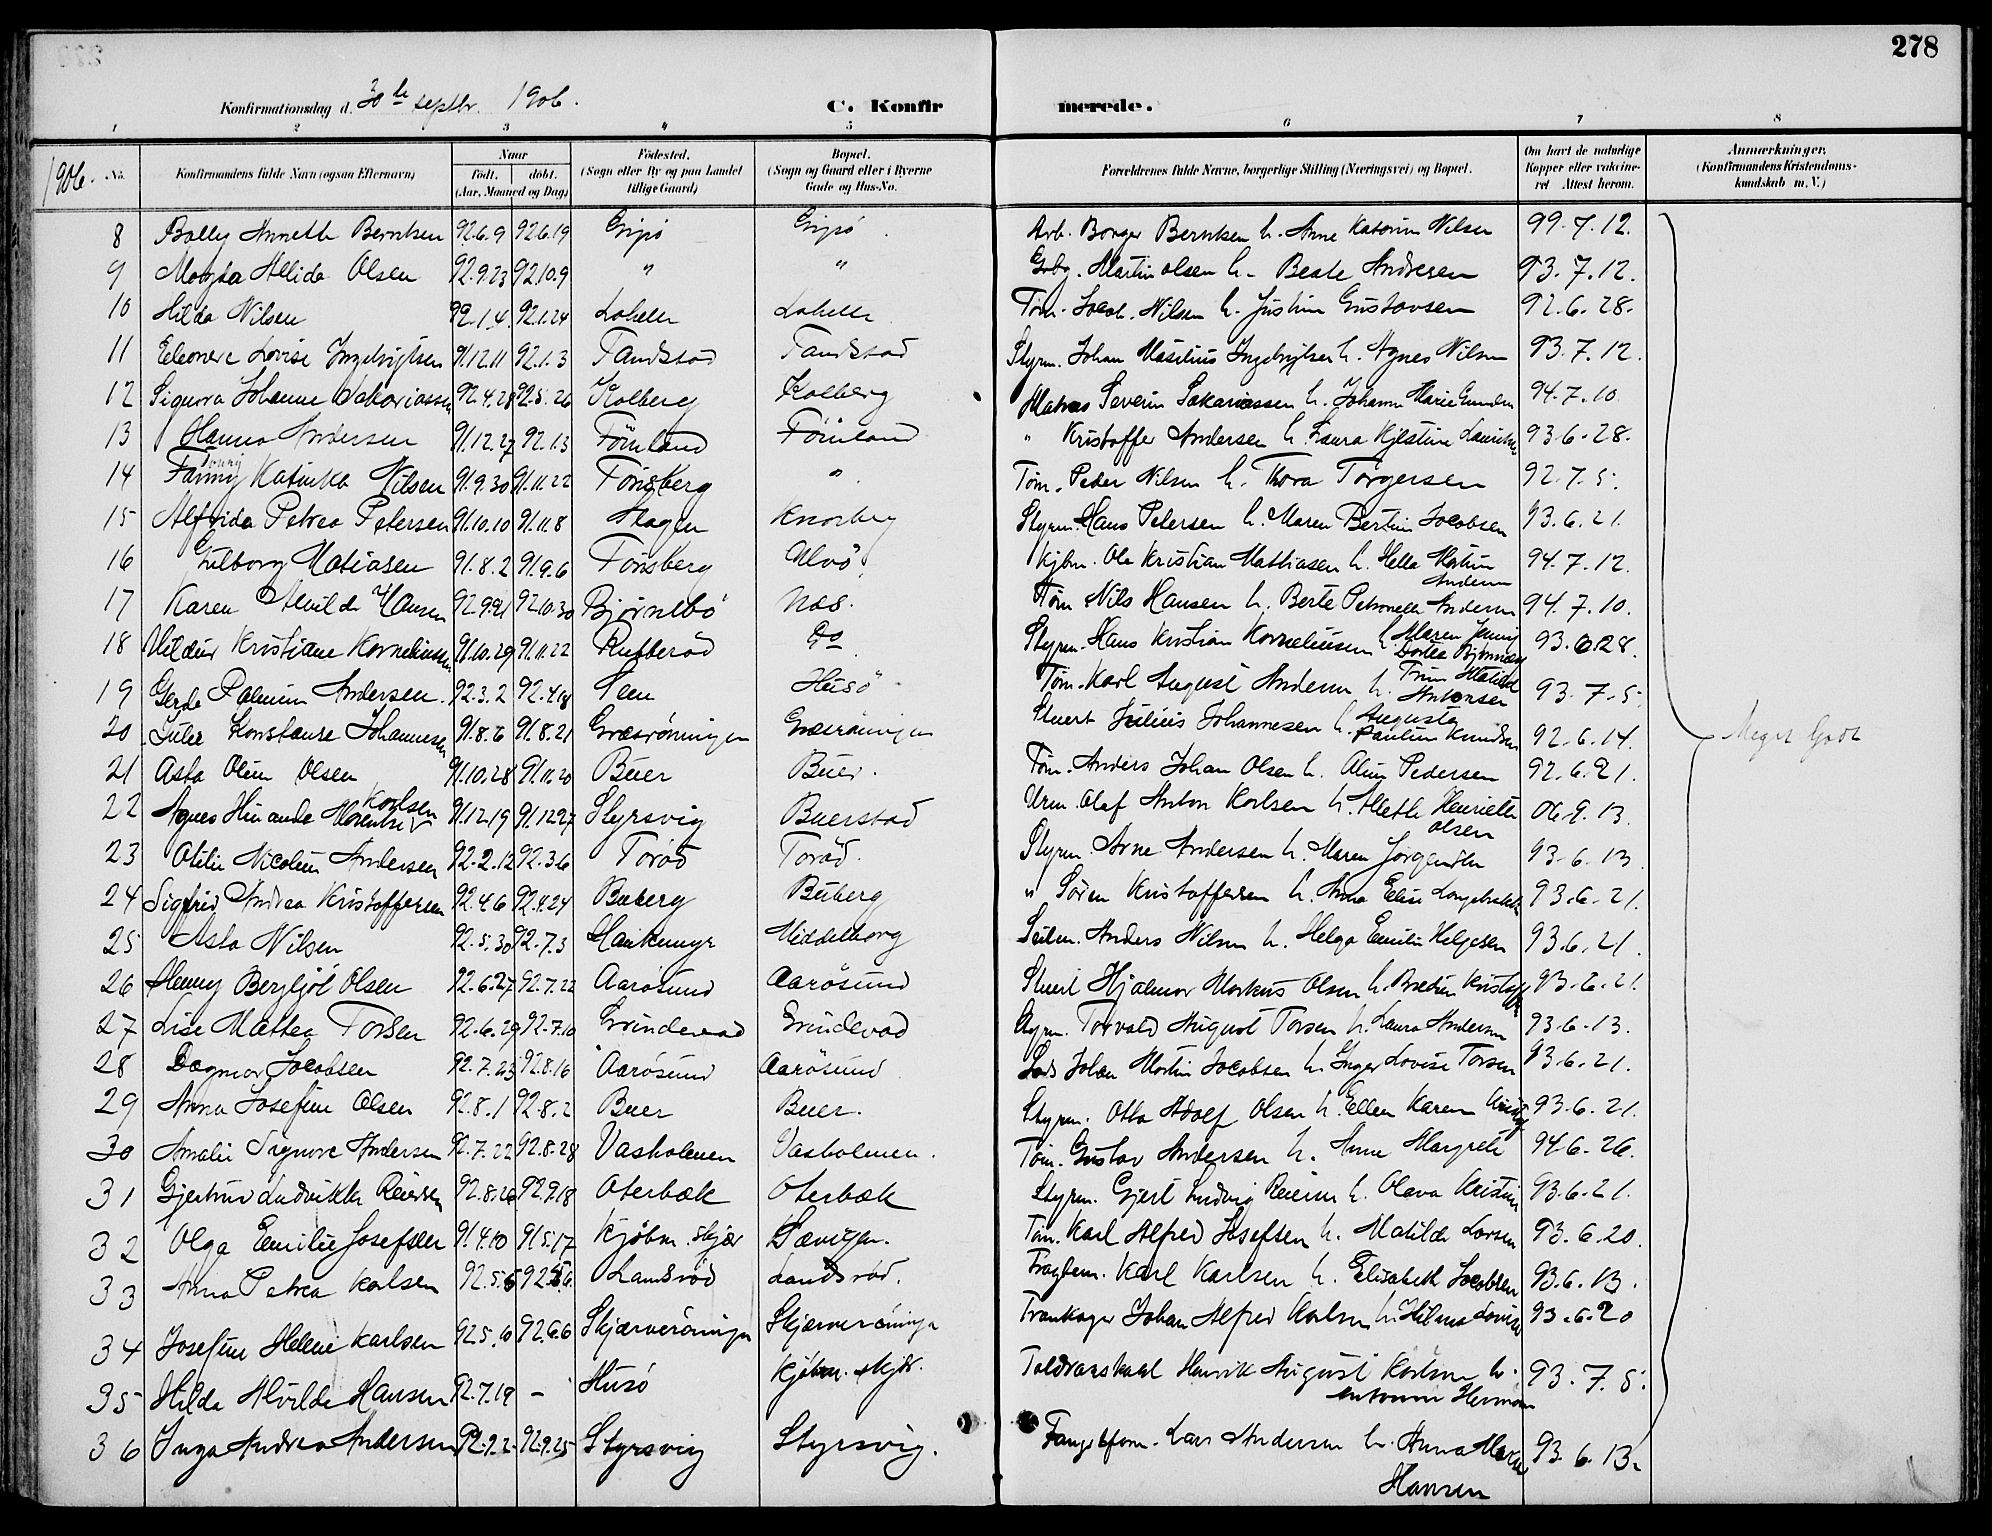 278
Konfirmationsdag d. 30te septbr. 1906. C. Konfirmerede.
1 2 3 4 5 6 7 8
1906. No. Konfirmandens fulde Navn (ogsaa Efternavn) Naar født. døbt. (Aar, Maaned og Dag) Fødested. (Sogn eller By og paa Landet tillige Gaard) Bopæl. (Sogn og Gaard eller i Byerne Gade og Hus-No. Forældrenes fulde Navne, borgerlige Stilling (Næringsvei) og Bopæl. Om havt de naturlige Kopper eller vaksineret Attest herom. Anmærkninger. (Konfirmandens Kristendomskundskab m. V.)
8 Bolly Annette Berntsen 92.6.9 92.6.19 Gipø Gipø Arb. Borger Berntsen h. Anne Katarina Nilsen 99.7.12.
9 Magda Alida Olsen 92.9.23 92.10.9 " " Grbg. Martin Olsen h. Beate Andresen 93.7.12.
10 Hilda Nilsen 92.1.4. 92.1.24 Labelle Labelle Tøm. Jacob Nilsen h. Justine Gustavsen 92.6.28.
11 Eleonore Lovise Ingebrigtsen 91.12.11 92.1.3 Tandstad Tandstad Styrm. Johan Masilius Ingebrigtsen h. Agnes Nilsen 93.7.12.
12 Signora Johanne Sakariassen 92.4.28 92.5.26 Kolberg Kolberg Matros Severin Sakariassen h. Johanne Marie 94.7.10
13 Hanna Andersen 91.12.27 92.1.3 Fönland Fönland " Kristoffer Andersen h. Laura Kjestine 93.6.28.
14 Fanny Katinka Nilsen 91.9.30 91.11.22 Tönsberg " Tøm. Peder Nilsen h. Thora Torgersen 92.7.5.
15 Alfrida Petrea Petersen 91.10.10 91.11.8 Slagen Knarberg Styrm. Hans Petersen h. Maren Bertine Jacobsen 93.6.21.
16 Gulborg Matiasen 91.8.2 91.9.6 Tönsberg Ulvö Kjbm. Ole Kristian Mathiasen h. Hella Andersen 94.7.12.
17 Karen Alvilda Hansen 92.9.21 92.10.30 Bjørnebo Næs. Tøm. Nils Hansen h. Berte Petronelle Andersen 94.7.10.
18 Mildur Kristiane Korneliussen 91.10.29 91.11.22 Rubberød Do Styrm. Hans Kristian Korneliussen h. Maren Jenny Dortea 93.6.28.
19 Gerda Palmine Andersen 92.3.2 92.4.18 Seen Husö Tøm. Karl August Andersen h. Trine Matilde Antonsen 93.7.5.
20 Julie Konstanse Johannesen 91.8.6 91.8.21 Græsröningen Græsröningen Stuert Julius Johannesen h. Augusta Pauline Knudsen 92.6.14.
21 Asta Oline Olsen 91.10.28 91.11.20 Buer Buer. Tøm. Anders Johan Olsen h. Aline Pedersen 92.6.21.
22 Agnes Karlsen 91.12.19 91.12.27 Styrsvig Buerstad Urm. Olaf Anton Karlsen h. Alette Henriette Olsen 06.9.13.
23 Otilie Nicoline Andersen 92.2.12 92.3.6 Torød Torød. Styrm. Arne Andersen h. Maren Jørgensen 93.6.13
24 Sigfrid Andrea Kristoffersen 92.4.6 92.4.24 Buberg Buberg " Sören Kristoffersen h. Anna Elise 93.6.21.
25 Asta Nilsen 92.5.30 92.7.3 Haukemyr Middelborg Seilm. Anders Nilsen h. Helga Emilie Helgesen 93.6.21.
26 Henny Bergljot Olsen 92.6.27 92.7.22 Aarösund Aarösund Stuert Hjalmar Markus Olsen h. 93.6.21.
27 Lise Mattea Torsen 92.6.29 92.7.10 Grinderød Grindevad Torvald August Torsen h. Laura Andersen 93.6.13.
28 Dagmar Jacobsen 92.7.23 92.8.16 Aarösund Aarösund Lods Johan Martin Jacobsen h. Inger Lovise Torsen 93.6.21.
29 Anna Josefine Olsen 92.8.1 92.8.2 Buer Buer. Styrm. Otto Adolf Olsen h. Ellen Karen 93.6.21.
30 Amalie Signora Andersen 92.7.22 92.8.28 Vasholmen Vasholmen. Tøm. Gustav Andersen h. Anne Margrete 94.6.26.
31 Gjertrud Ludvikke Reiersen 92.8.26 92.9.18 Oterbæk Oterbæk Styrm. Gjert Ludvig Reiersen h. Olava Kristine 93.6.21.
32 Olga Emilie Josefsen 91.4.10 91.5.17 Kjöbm. skjær Tøm. Karl Alfred Josefsen h. Matilde Larsen 93.6.20.
33 Anna Petrea Karlsen 92.5.6 Landsrød Landsrød. Fragtem. Karl Karlsen h. Elisabeth Jacobsen 93.6.13.
34 Josefine Helene Karlsen 92.5.10 92.6.6 Skjærveröningen Skjærveröningen Trankoger Johan Alfred Karlsen h. Hilma Lovise 93.6.20
35 Hilda Alvilda Hansen 92.7.19 – Husö Kjöbm. skjær. Henrik August Karlsen h. Antonsen Herman 93.7.5.
36 Inga Andrea Andersen 92.9.2 92.9.25 Styrsvig Styrsvig. Fangstfom. Lars Andersen h. Anna Maren Hansen 93.6.13.
Meget Godt